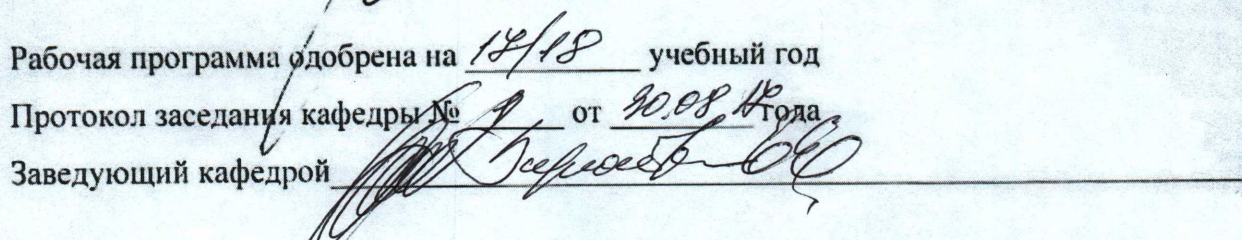 Рабочая программа одобрена на 17/18 учебный год
Протокол заседания кафедры № 1 от 30.08.17 года
Заведующий кафедрой